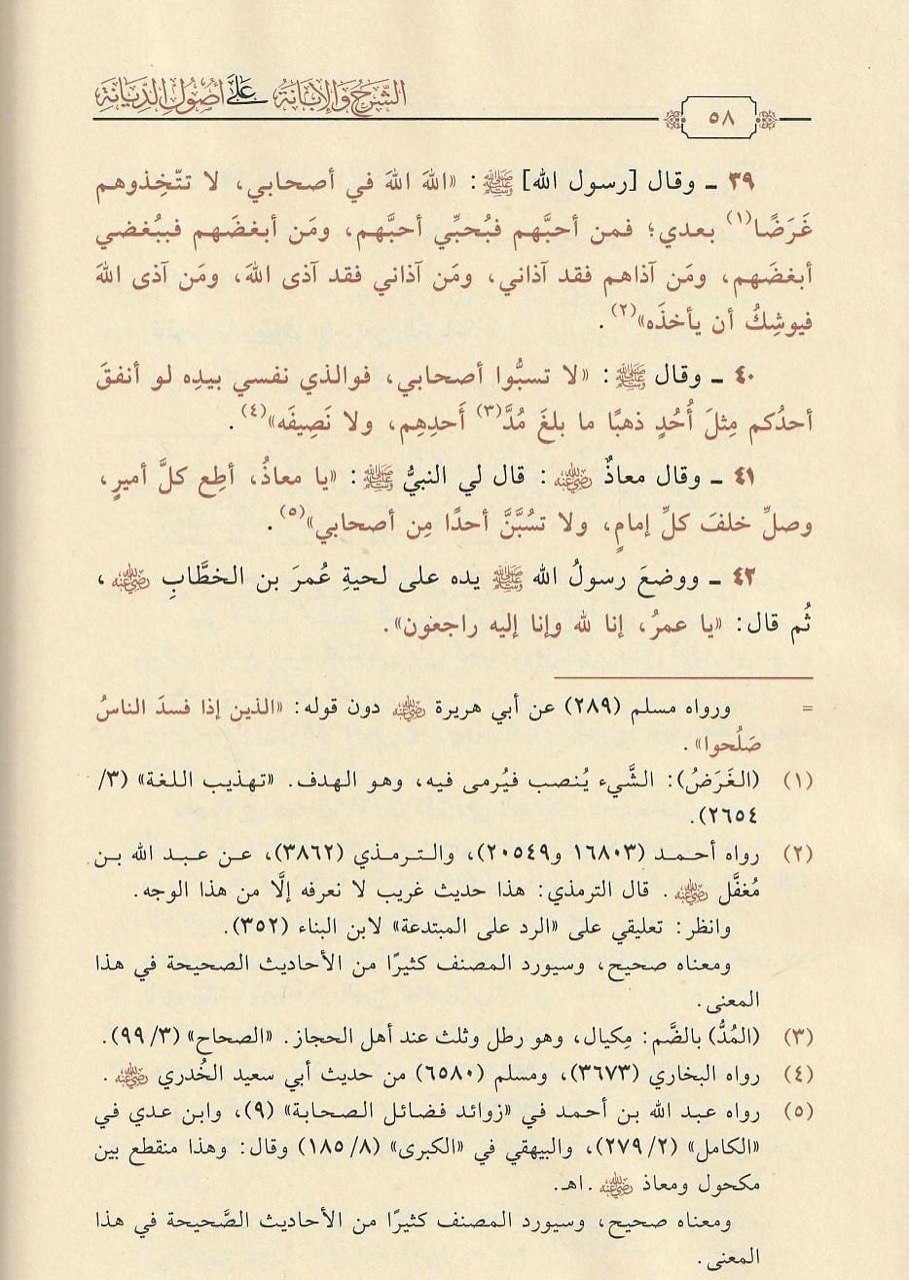 الشرح والإبانة على أصول الديانة
٥٨
٣٩ ـ وقال [رسول الله] ﷺ: «اللهَ اللهَ في أصحابي، لا تتّخِذوهم
غَرَضًا(١) بعدي؛ فمن أحبَّهم فبُحبِّي أحبَّهم، ومَن أبغضَهم فببُغضي
أبغضَهم، ومَن آذاهم فقد آذاني، ومَن آذاني فقد آذى اللهَ، ومَن آذى اللهَ
فيوشِكُ أن يأخذَه»(٢).
٤٠ ـ وقال ﷺ: «لا تسبُّوا أصحابي، فوالذي نفسي بيدِه لو أنفقَ
أحدُكم مِثلَ أُحُدٍ ذهبًا ما بلغَ مُدَّ(٣) أَحدِهِم، ولا نَصِيفَه»(٤).
٤١ ـ وقال معاذٌ رضي الله عنه: قال لي النبيُّ ﷺ: «يا معاذُ، أطِع كلَّ أميرٍ،
وصلِّ خلفَ كلِّ إمامٍ، ولا تسُبَّنَّ أحدًا مِن أصحابي»(٥).
٤٢ ـ ووضعَ رسولُ الله ﷺ يده على لحيةِ عُمرَ بن الخطَّابِ رضي الله عنه،
ثُم قال: «يا عمرُ، إنا لله وإنا إليه راجعون».
= ورواه مسلم (٢٨٩) عن أبي هريرة رضي الله عنه دون قوله: «الذين إذا فسدَ الناسُ
صَلُحوا».
(١) (الغَرَضُ): الشَّيء يُنصب فيُرمى فيه، وهو الهدف. «تهذيب اللغة» (٣/
٢٦٥٤).
(٢) رواه أحمد (١٦٨٠٣ و٢٠٥٤٩)، والترمذي (٣٨٦٢)، عن عبد الله بن
مُغفَّل رضي الله عنه. قال الترمذي: هذا حديث غريب لا نعرفه إلَّا من هذا الوجه.
وانظر: تعليقي على «الرد على المبتدعة» لابن البناء (٣٥٢).
ومعناه صحيح، وسيورد المصنف كثيرًا من الأحاديث الصحيحة في هذا
المعنى.
(٣) (المُدُّ) بالضَّم: مِكيال، وهو رطل وثلث عند أهل الحجاز. «الصحاح» (٣/٩٩).
(٤) رواه البخاري (٣٦٧٣)، ومسلم (٦٥٨٠) من حديث أبي سعيد الخُدري رضي الله عنه.
(٥) رواه عبد الله بن أحمد في «زوائد فضائل الصحابة» (٩)، وابن عدي في
«الكامل» (٢/٢٧٩)، والبيهقي في «الكبرى» (٨/١٨٥) وقال: وهذا منقطع بين
مكحول ومعاذ رضي الله عنه. اهـ.
ومعناه صحيح، وسيورد المصنف كثيرًا من الأحاديث الصَّحيحة في هذا
المعنى.